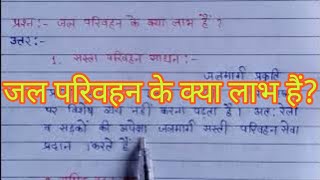 प्रश्न:- जल परिवहन के क्या लाभ हैं ?
उत्तर:-
1. सस्ता परिवहन साधन:-
जलमार्ग प्रकृति
जल परिवहन के क्या लाभ हैं?
पर विशेष व्यय नहीं करना पड़ता है। अत: रेलों
व सड़कों की अपेक्षा जलमार्ग सस्ती परिवहन सेवा
प्रदान करते हैं